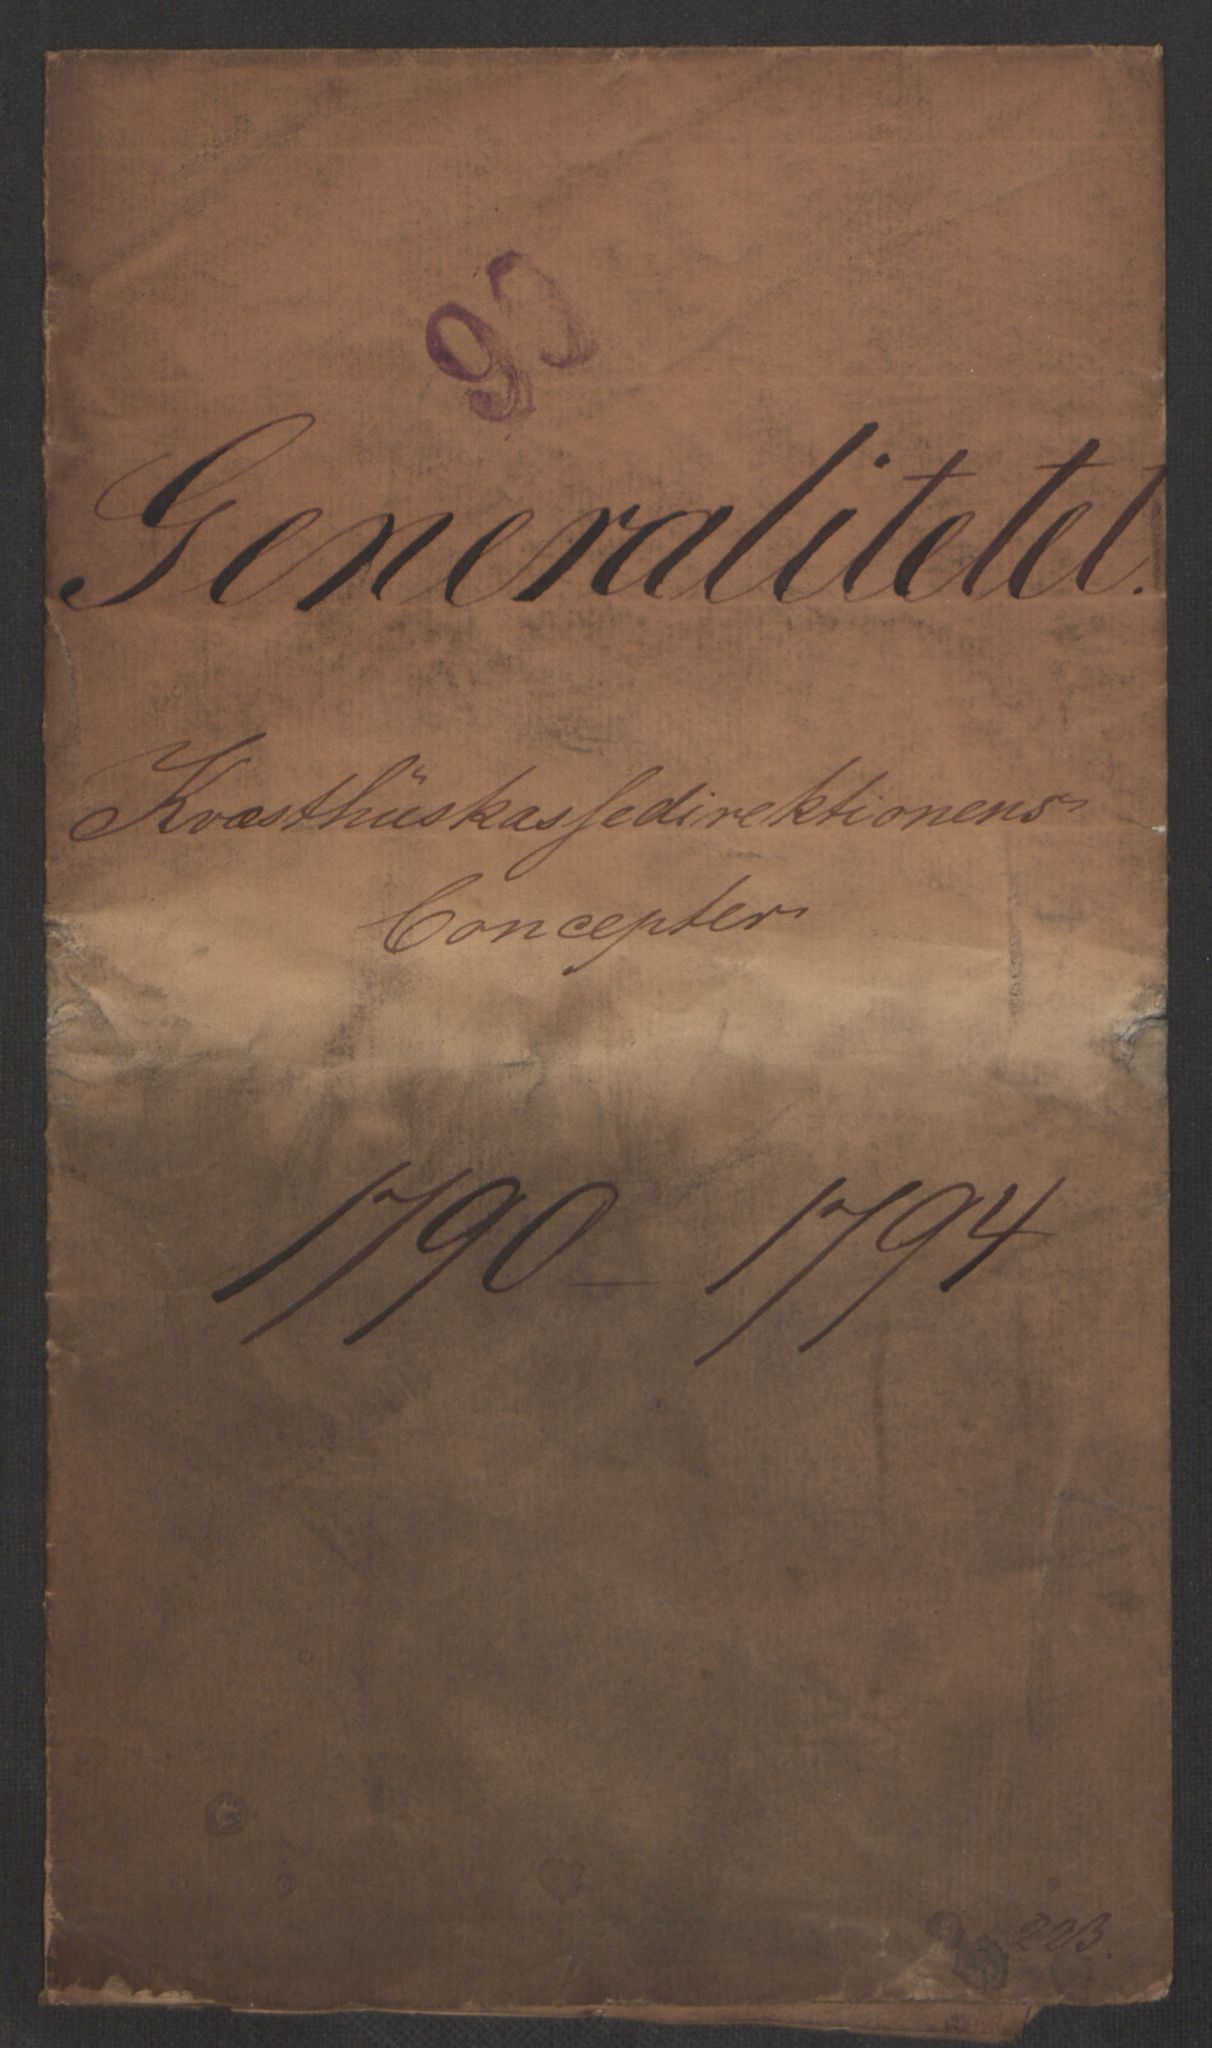 Generalitetet.
Kvæsthüskassedirektionens
Concepter
1790 – 1794